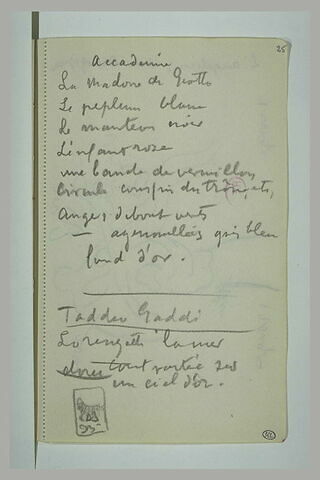 25
Accademie
La madone de Giotto
Le peplum blanc
Le manteau noir
L'enfant rose
une bande de vermillon
circule coussin du trône, etc,
Anges debout verts
— agenouillés gris bleu
fond d'or.
Taddeo Gaddi
Lorenzetti la mer
tout
un ciel d'or.